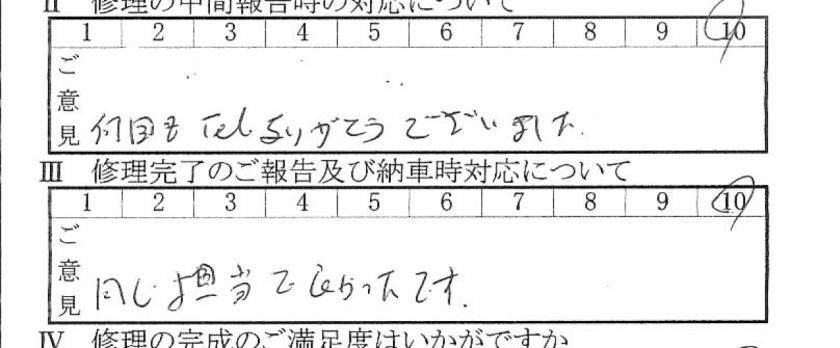 II 修理の中間報告時の対応について
1 2 3 4 5 6 7 8 9 10
ご意見 何回も Tel ありがとうございました.
III 修理完了のご報告及び納車時対応について
1 2 3 4 5 6 7 8 9 10
ご意見 同じ担当でよかったです.
IV 修理の完成のご満足度はいかがですか